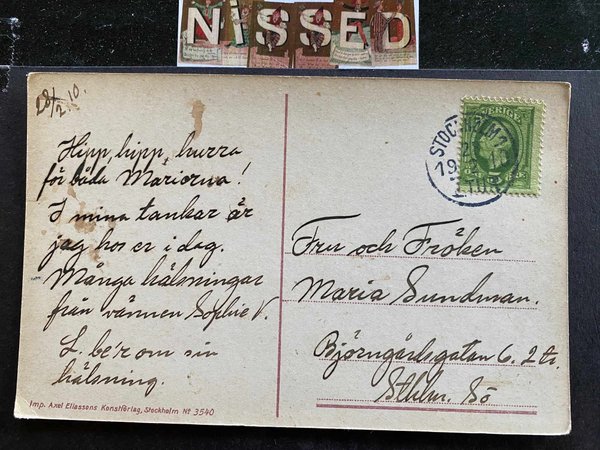 NISSED
28/2.10.
Hipp, hipp, hurra
för båda Mariorna!
I mina tankar är
jag hos er i dag.
Många hälsningar
från vännen Sophie V.
L. be'r om sin
hälsning.
Imp. Axel Eliassons Konstförlag, Stockholm № 3540
STOCKHOLM
SVERIGE
5
Fru och Fröken
Maria Sundman.
Björngårdsgatan 6. 2 tr.
Sthlm. Sö